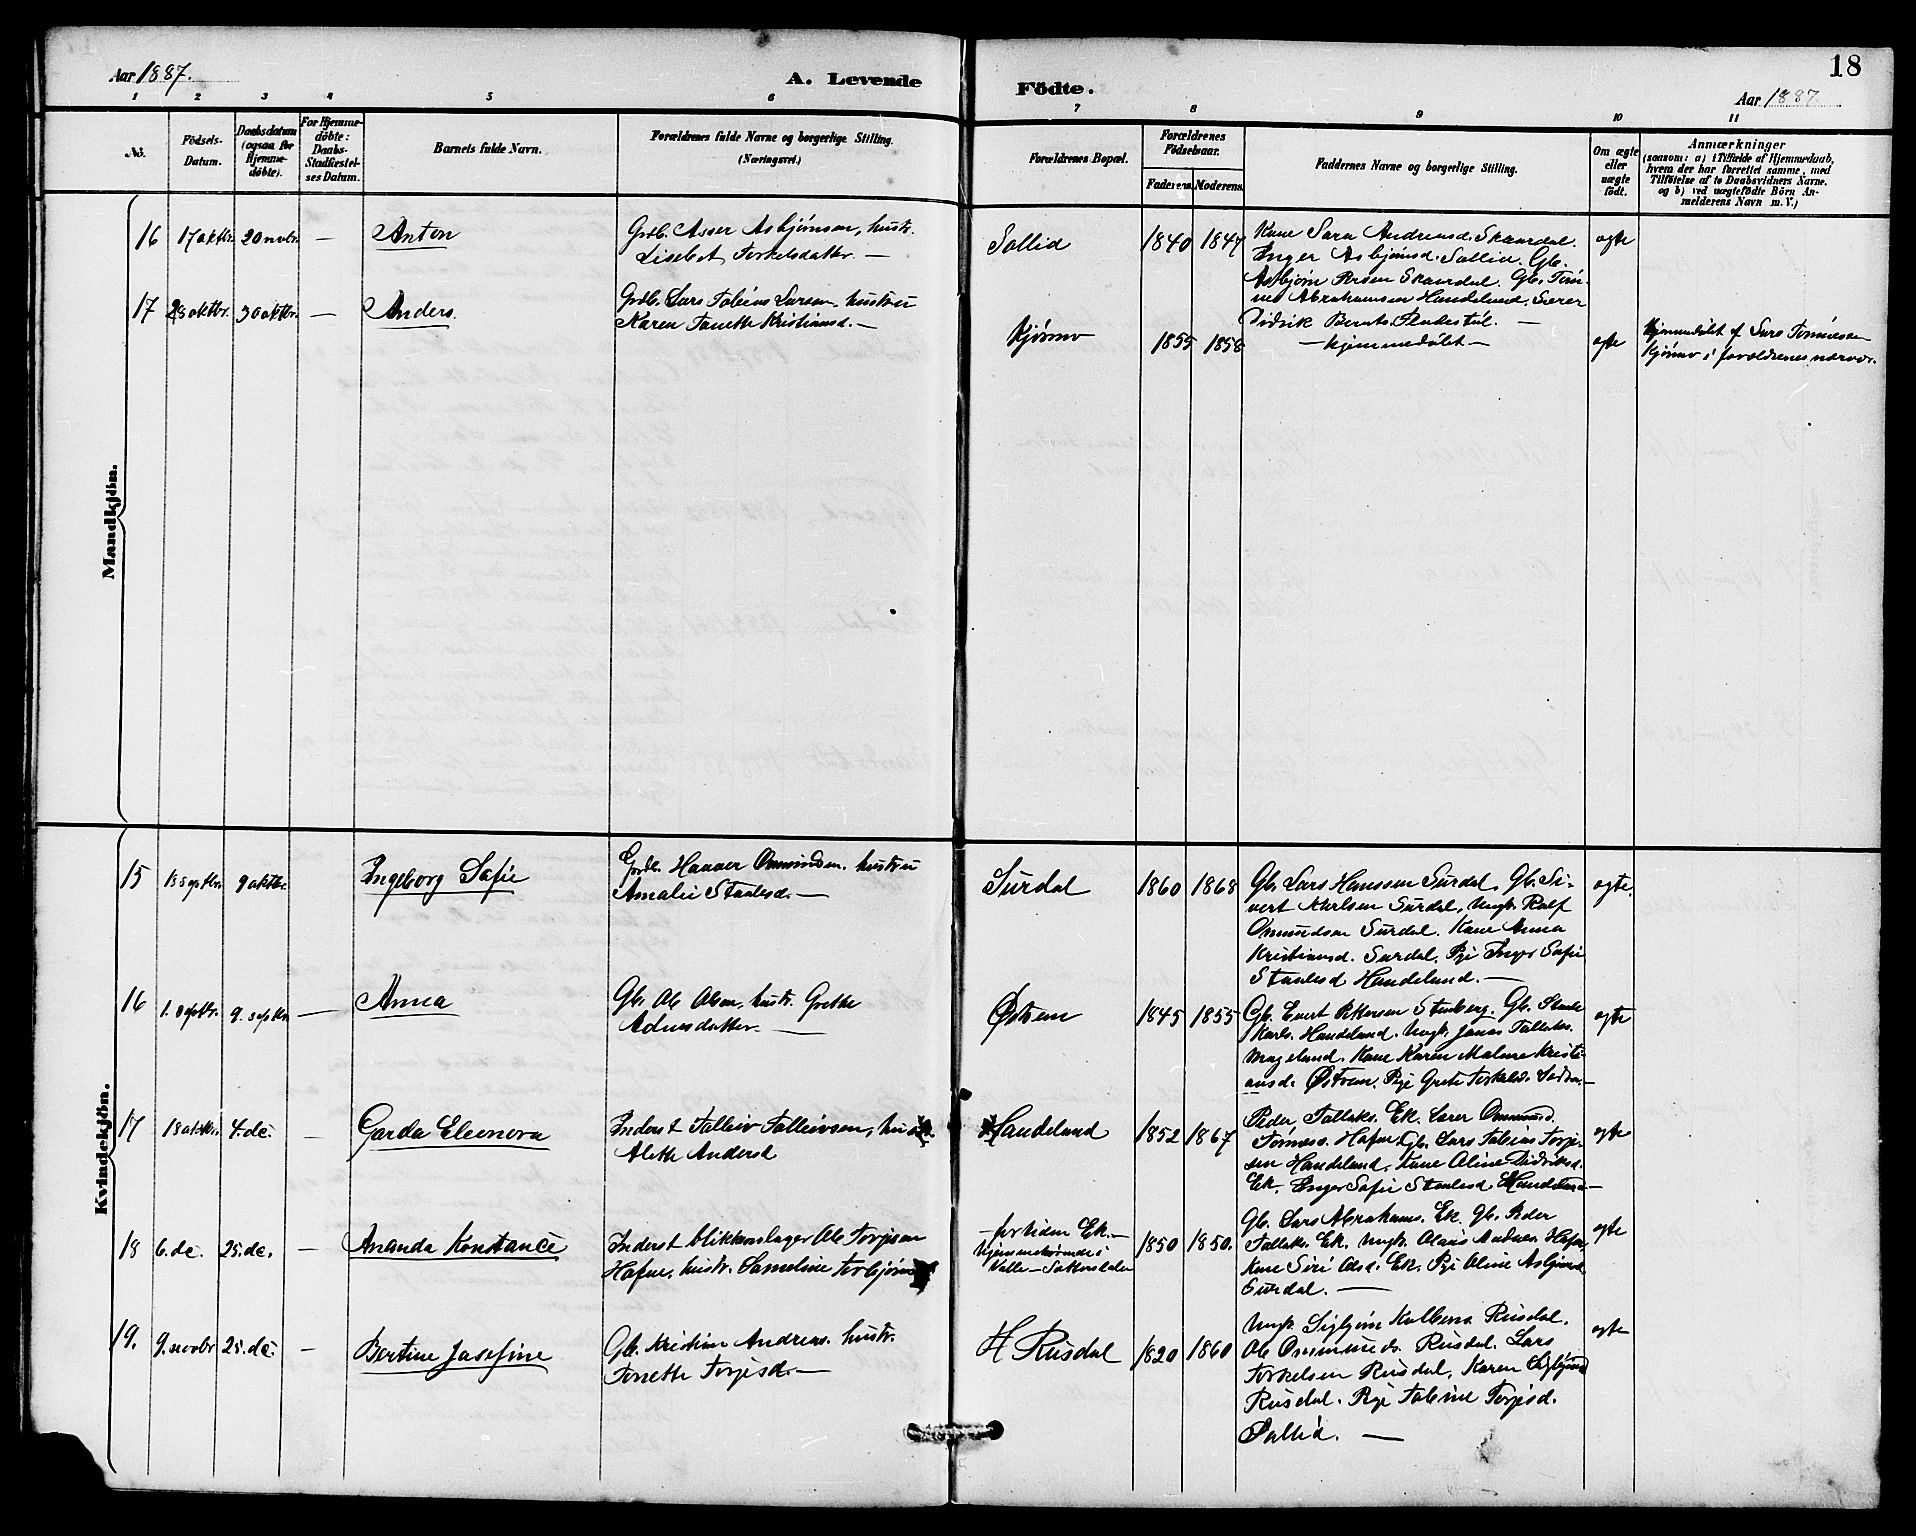 Aar 1887.
A. Levende Födte.
18
Aar 1887
1 2 3 4 5 6 7 8 9 10 11
No.
Födsels-
Datum.
Daabsdatum
(ogsaa for
Hjemme-
döbte).
For Hjemme-
döbte:
Daabs-
Stadfæstel-
ses Datum.
Barnets fulde Navn.
Forældrenes fulde Navne og borgerlige Stilling.
(Næringsvei.)
Forældrenes Bopæl.
Forældrenes
Födselsaar.
Faderens. Moderens.
Faddernes Navne og borgerlige Stilling.
Om ægte
eller
uægte
födt.
Anmærkninger
(saasom: a) i Tilfælde af Hjemmedaab,
hvem der har forrettet samme, med
Tilföielse af to Daabsvidners Navne.
og b) ved uægtefödte Börn An-
melderens Navn m. V.)
Mandkjön.
16 17 oktbr. 20 novbr. — Anton
Grdb. Asser Asbjørnsen, hustr.
Lisebet Torkelsdatter. —
Sollid 1840 1847
Kone Sara Andreasd. Skaardal.
Inger Asbjørnsd. Sollid. Gb.
Asbjørn Skaardal. Gb. Tøn-
nes Abrahamsen Handeland, Sører
Didrik Bernts. —
ægte
17 28 oktbr. 30 oktbr. — Anders.
Grdb. Lars Tobias Larsen, hustru
Karen Tonette Kristiansd. —
Kjørmo 1855 1858
— hjemmedøbt —
ægte
Hjemmedøbt af Lars Tønnesen
Kjørmo i forældrenes nærvær.
Kvindekjön.
15 15 septbr. 9 oktbr. Ingeborg Sofie
Gaardb. Hanver Ommundsen. hustru
Amalie Staalesd. —
Surdal 1860 1868
Gb. Lars Hanssen Surdal, Gb. Si-
vert Surdal, Ungk. Rolf
Omundsen Surdal. Kone Anna
Kristiansd. Surdal. Pige Inger Sofie
Staalesd Handeland. —
ægte.
16 1. septbr. 9. septbr. — Anna
Gb. Ole Olsen, hustr. Grethe
Adnesdatter. —
Østrem 1845 1855
Gb. Evert Stenberg. Gb. Staale
Karls. Handeland. Ungk. Jonas Tallaks.
Mageland. Kone Karen Malene Kristi-
ansd. Østrem. Pige Grete Torkelsd.
ægte
17 18 oktbr. 4. dc. — Garda Eleonora
Inderst Talleiv Talleivsen, hustr.
Alette Andersd
Handeland 1852 1867
Peder Tallaks. Ek. Sører Ommund
Tønness. Hafne, Gb. Lars Tobias Torje-
sen Handeland. Kone Aline Didriksd.
Ek. Inger Sofie Staalesd. Handeland —
ægte
18 6. dc. 25. dc. — Ananda Konstance
Inderst blikkenslager Ole Torjesen
Hafne, hustr. Sameline Torbjørnsd.
— fortiden Ek. —
Hjemmehørende i
Valle — Sætersdalen
1850 1850.
Gb. Lars Abrahams. Ek. Gb. Peder
Tallaks. Ek. Ungk. Olaus Hafne,
Kone Siri Olsd. Ek. Pige Aline Asbjørnsd
Surdal. —
ægte
19. 9. novbr 25. dc. — Bertine Josefine
Gb. Kristian Andreas. hustr.
Tonette Torjesd. —
H Rusdal 1820 1860
Ungk. Sigbjørn Rusdal.
Ole Ommunds. Rusdal. Lars
Torkelsen Rusdal, Karen Sigbjørnsd
Rusdal. Pige Tobine Torjesd.
Sollid. —
ægte